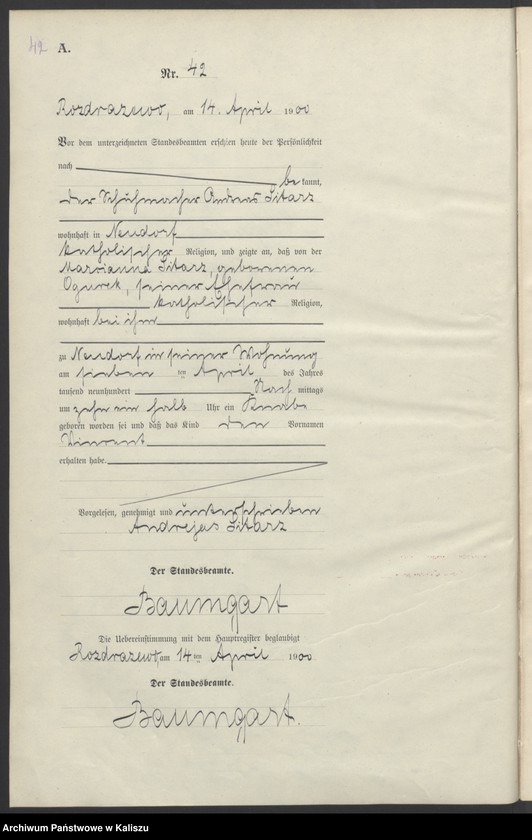 42 A.
Nr. 42
Rozdrazewo, am 14. April 1900
Vor dem unterzeichneten Standesbeamten erschien heute der Persönlichkeit
nach be kannt,
der Schuhmacher Andreas Sitarz
wohnhaft in Neudorf
katholischer Religion, und zeigte an, daß von der
Marianna Sitarz, geborenen
Ogurek, seiner Ehefrau
katholischer Religion,
wohnhaft bei ihm
zu Neudorf in seiner Wohnung
am sieben ten April des Jahres
tausend neunhundert Nach mittags
um zehn ein halb Uhr ein Knabe
geboren worden sei und daß das Kind den Vornamen
Vincent
erhalten habe.
Vorgelesen, genehmigt und unterschrieben
Andrzejas Sitarz
Der Standesbeamte.
Baumgart
Die Uebereinstimmung mit dem Hauptregister beglaubigt
Rozdrazewo, am 14 ten April 1900
Der Standesbeamte.
Baumgart.
Archiwum Państwowe w Kaliszu